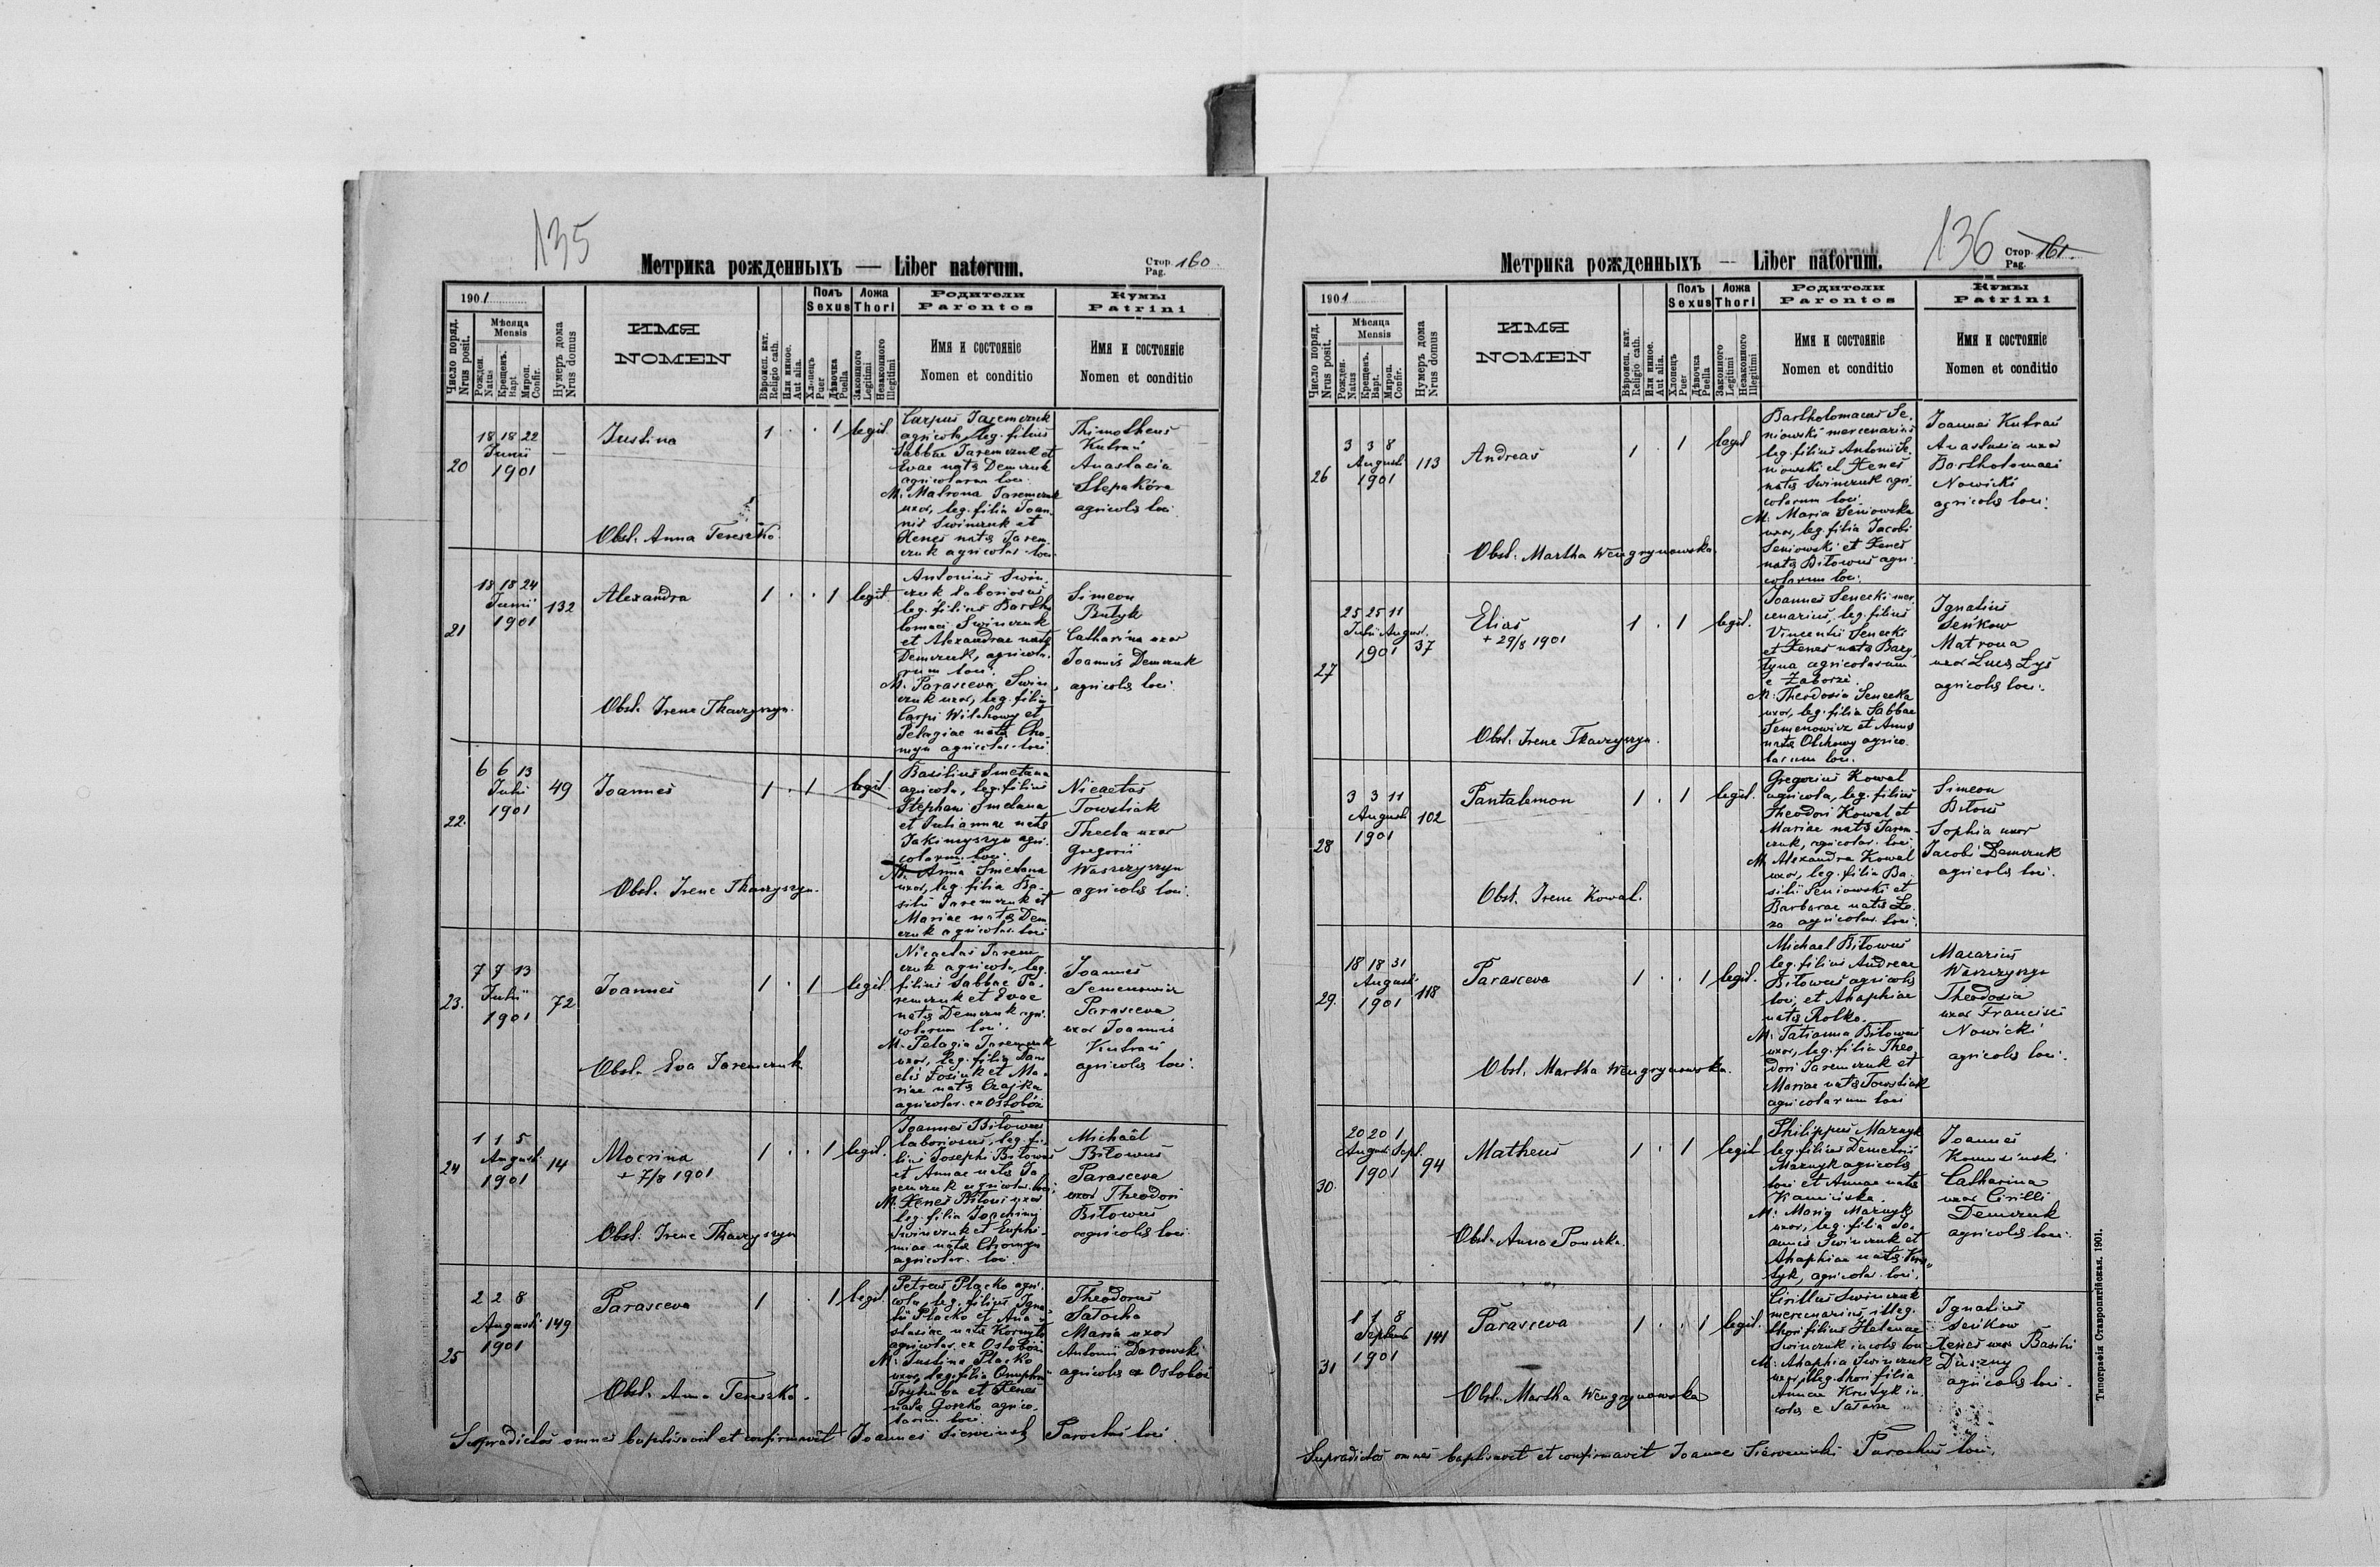 135
Метрика рожденныхъ — Liber natorum.
Стор. 160
Pag.
1901
Число поряд.
Nrus posit.
Мѣсяца
Mensis
Рожден.
Natus
Крещенъ.
Bapt.
Мироп.
Confir.
Нумеръ дома
Nrus domus
ИМЯ
NOMEN
Вѣроисп. кат.
Religio cath.
Или иное.
Aut alia.
Полъ
Sexus
Хлопецъ
Puer
Дѣвочка
Puella
Ложа
Thori
Законного
Legitimi
Незаконного
Illegitimi
Родители
Parentes
Имя и состояніе
Nomen et conditio
Кумы
Patrini
Имя и состояніе
Nomen et conditio
20
18 18 22
Junii
1901
Justina
Obst. Anna Tereszko
1 . . 1 legit.
Carpus Jaremczuk
agricola, leg. filius
Sabbae Jaremczuk et
Evae nata Demczuk
agricolarum loci.
M. Matrona Jaremczuk
uxor, leg. filia Joan-
nis Swinczuk et
Xenes nata Jarem-
czuk agricolar. loci
Thimotheus
Kutraś
Anastasia
agricolis loci
21
18 18 24
Junii
1901
132
Alexandra
Obst. Irene Tkaczyszyn.
1 . . 1 legit.
Antonius Swin-
czuk laboriosus
leg. filius Bartho-
lomaei Swinczuk
et Alexandrae nata
Demczuk, agricola-
rum loci.
M. Parasceva Swin-
czuk uxor, leg. filia
Carpi Wilchowy et
Pelagiae nata Cho-
myn agricolar. loci
Simeon
Butyk
Catharina uxor
Joannis Demczuk
agricolis loci
22.
6 6 13
Julii
1901
49
Joannes
Obst. Irene Tkaczyszyn.
1 . 1 legit.
Basilius Smetana
agricola, leg. filius
Stephani Smetana
et Juliannae nata
Jakimyszyn agri-
colarum loci.
M. Anna Smetana
uxor, leg. filia Ba-
silii Jaremczuk et
Mariae nata Dem
czuk agricolar. loci
Nicaetas
Towstiak
Thecla uxor
Gregorii
Waszczyszyn
agricolis loci.
23.
7 7 13
Julii
1901
72
Joannes
Obst. Eva Jaremczuk
1 . 1 legit.
Nicaetas Jarem-
czuk agricola, leg.
filius Sabbae Ja-
remczuk et Evae
nata Demczuk agri-
colarum loci.
M. Pelagia Jaremczuk
uxor, leg. filia Dani
elis Łosiuk et Ma-
riae nata Czajka
agricolar. ex Osłobóz
Joannes
Semenowicz
Parasceva
uxor Joannis
Kutraś
agricolis loci.
24
1 1 5
Augusti
1901
14
Mocrina
+ 7/8 1901
Obst. Irene Tkaczyszyn
1 . . 1 legit.
Joannes Biłowus
laboriosus, leg. fi-
lius Josephi Biłowus
et Annae nata Ja
remczuk agricolar. loci,
leg. filia Joachimi
Swinczuk et Euphi-
miae nata Chomyn
agricolar. loci.
Michaël
Biłowus
Parasceva
uxor Theodori
Biłowus
agricolis loci
25
2 2 8
Augusti
1901
149
Parasceva
Obst. Anna Tereszko.
1 . 1 legit.
Petrus Placko agri-
cola, leg. filius Igna-
tii Placko et Ana-
stasiae nata Kornyło
agricolar. ex Osłobóz
M. Justina Placko
uxor, leg. filia Onuphri
et Xenes
nata Goszko agrico-
larum loci.
Theodorus
Satocha
Maria uxor
Antonii Darowski
agricolis ex Osłobóz
Supradictos omnes baptisavit et confirmavit Joannes Parochus loci.
136
Метрика рожденныхъ — Liber natorum.
Стор. 161.
Pag.
1901
Число поряд.
Nrus posit.
Мѣсяца
Mensis
Рожден.
Natus
Крещенъ.
Bapt.
Мироп.
Confir.
Нумеръ дома
Nrus domus
ИМЯ
NOMEN
Вѣроисп. кат.
Religio cath.
Или иное.
Aut alia.
Полъ
Sexus
Хлопецъ
Puer
Дѣвочка
Puella
Ложа
Thori
Законного
Legitimi
Незаконного
Illegitimi
Родители
Parentes
Имя и состояніе
Nomen et conditio
Кумы
Patrini
Имя и состояніе
Nomen et conditio
26
3 3 8
Augusti
1901
113
Andreas
Obst. Martha Wengrynowska
1 . 1 legit
Bartholomaeus Se-
niowski mercenarius
leg. filius Antonii Se-
niowski et Xenes
nata Swinczuk agri-
colarum loci.
M. Maria Seniowska
uxor, leg. filia Jacobi
Seniowski et Xenes
nata Biłowus agri-
colarum loci.
Joannes Kutraś
Anastasia uxor
Bartholomaei
Nowicki
agricolis loci.
27
25 25 11
Julii August.
1901
37
Elias
+ 29/8 1901
Obst. Irene Tkaczyszyn.
1 . 1 legit.
Joannes Senecki mer-
cenarius, leg. filius
Vincentii Senecki
et Xenes nata Bary-
agricolarum
e Zaborze.
M. Theodosia Senecka
uxor, leg. filia Sabbae
Semenowicz et Anna
nata Olchowy agrico-
larum loci.
Ignatius
Seńkow
Matrona
uxor Lucae Łyś
agricolis loci.
28
3 3 11
Augusti
1901
102
Pantalemon
Obst. Irene Kowal.
1 . 1 legit.
Gregorius Kowal
agricola, leg. filius
Theodori Kowal et
Mariae nata Jarem-
czuk, agricolar. loci.
M. Alexandra Kowal
uxor, leg. filia Ba-
silii Seniowski et
Barbarae nata Ło-
za agricolar. loci.
Simeon
Sophia uxor
Jacobi Demczuk
agricolis loci.
29.
18 18 31
Augusti
1901
118
Parasceva
Obst. Martha Wengrynowska.
1 . . 1 legit.
Michael Biłowus
leg. filius Andreae
Biłowus agricolis
loci, et Ahaphiae
nata Rolko.
M. Tatianna Biłowus
uxor, leg. filia Theo
dori Jaremczuk et
Mariae nata Towstiak
agricolarum loci
Macarius
Waszczyszyn
Theodosia
uxor Francisci
Nowicki
agricolis loci.
30.
20 20 1
Augusti Sept.
1901
94
Matheus
1 . 1 legit
Philippus Maznyk
leg. filius Demetrii
Maznyk agricolis
loci et Annae nata
Kamińska.
M. Maria Maznyk
uxor, leg. filia Jo-
annis Swinczuk et
Ahaphiae nata Kru-
tyk, agricolar. loci.
Joannes
Catharina
uxor Cirilli
Demczuk
agricolis loci.
31
1 1 8
Septemb
1901
141
Parasceva
Obst. Martha Wengrynowska
1 . . 1 legit.
Cirillus Swinczuk
mercenarius, illeg.
thori filius Helenae
Swinczuk incolis loci
M. Ahaphia Swinczuk
uxor, illeg. thori filia
Annae Krutyk in-
colis e
Ignatius
Seńkow
Xenes uxor Basilii
agricolis loci.
Supradictos omnes baptisavit et confirmavit Joannes Parochus loci.
Типографія Ставропигійская. 1901.